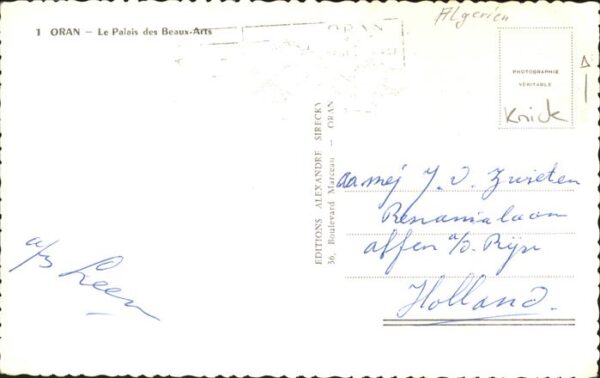 Algerien
1 ORAN — Le Palais des Beaux-Arts
PHOTOGRAPHIE
VÉRITABLE
Knick
EDITIONS ALEXANDRE SIRECKY
36, Boulevard Marceau — ORAN
aa mej J. v. Zwieten
laan
alfen a/d. Rijn
Holland.
a/b Leen